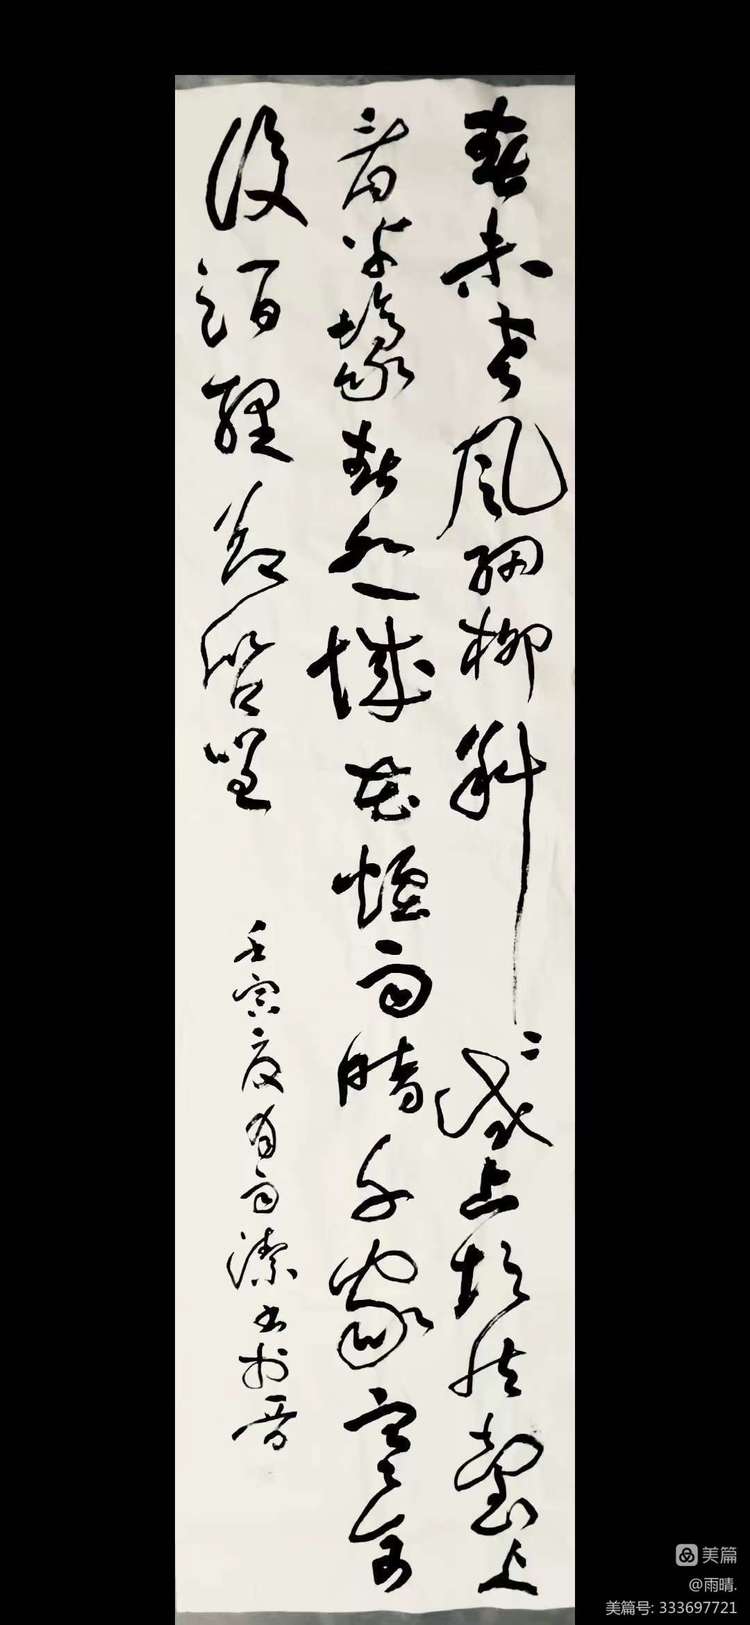 春未老風細柳斜〻試上超然臺上
看半壕春水一城花煙雨暗千家寒食
後酒醒却咨嗟
壬寅夏月雨潔书於晋
美篇
@雨晴.
美篇号: 333697721